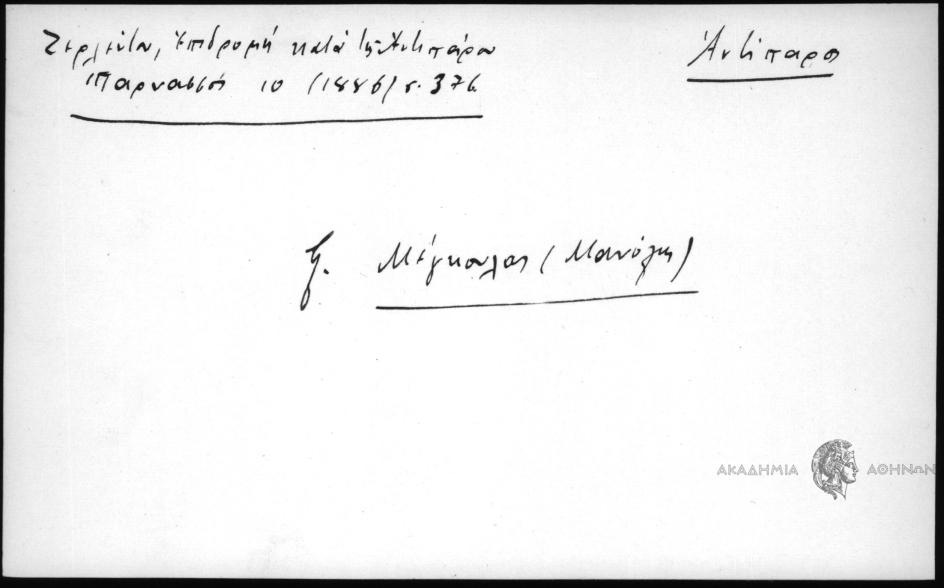 Ζερλέντη, Ἐπιδρομή κατά τῆς Ἀντιπάρου
Παρνασσός 10 (1886) σ. 376
Ἀντίπαρος
Μέγκουλας (Μανόλης)
ΑΚΑΔΗΜΙΑ ΑΘΗΝΩΝ